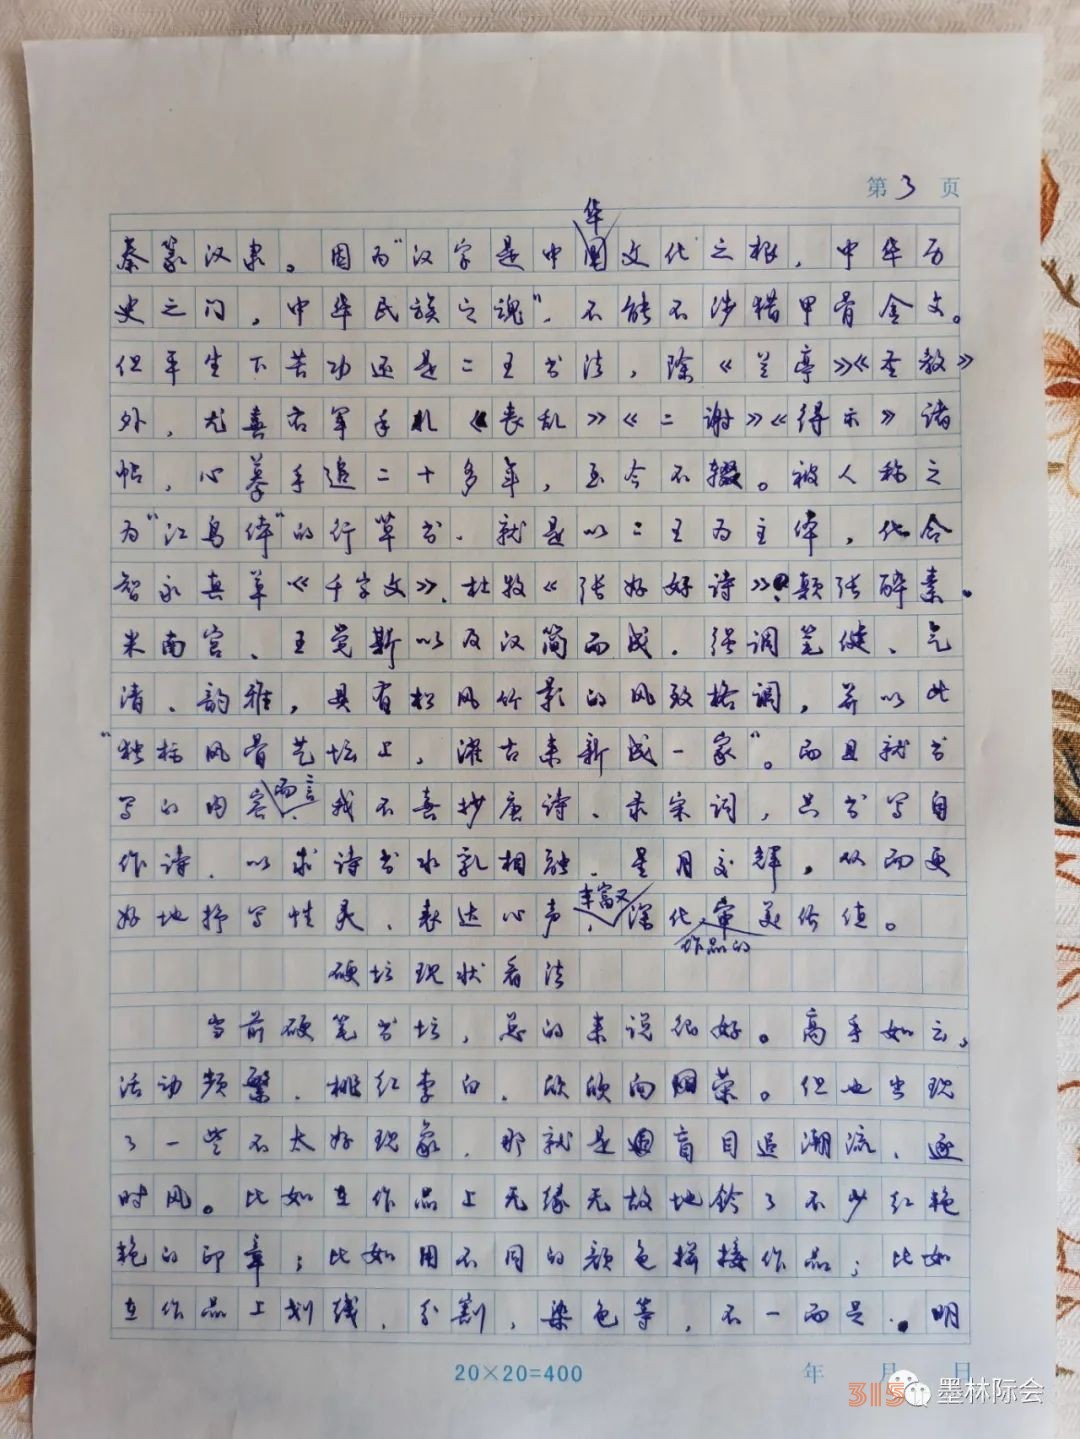 第3页
华
秦篆汉隶。因为“汉字是中国文化之根，中华历
史之门，中华民族之魂”，不能不涉猎甲骨金文。
但平生下苦功还是二王书法，除《兰亭》《圣教》
外，尤喜右军手札《丧乱》《二谢》《得示》诸
帖，心摹手追二十多年，至今不辍。被人称之
为“江鸟体”的行草书，就是以二王为主体，化合
智永真草《千字文》、杜牧《张好好诗》、颠张醉素、
米南宫、王觉斯以及汉简而成。强调笔健、气
清、韵雅，具有松风竹影的风致格调，并以此
“独标风骨艺坛上，濯古来新成一家”。而且就书
写的内容而言，我不喜抄唐诗、录宋词，只书写自
作诗，以求诗书水乳相融，星月交辉，从而更
好地抒写性灵、表达心声，丰富又深化作品的审美价值。
硬坛现状看法
当前硬笔书坛，总的来说很好。高手如云，
活动频繁，桃红李白，欣欣向荣。但也出现
了一些不太好现象，那就是盲目追潮流、逐
时风。比如在作品上无缘无故地钤了不少红艳
艳的印章；比如用不同的颜色拼接作品；比如
在作品上划线，分割，染色等，不一而足。明
20×20=400 年 月 日
315 墨林际会